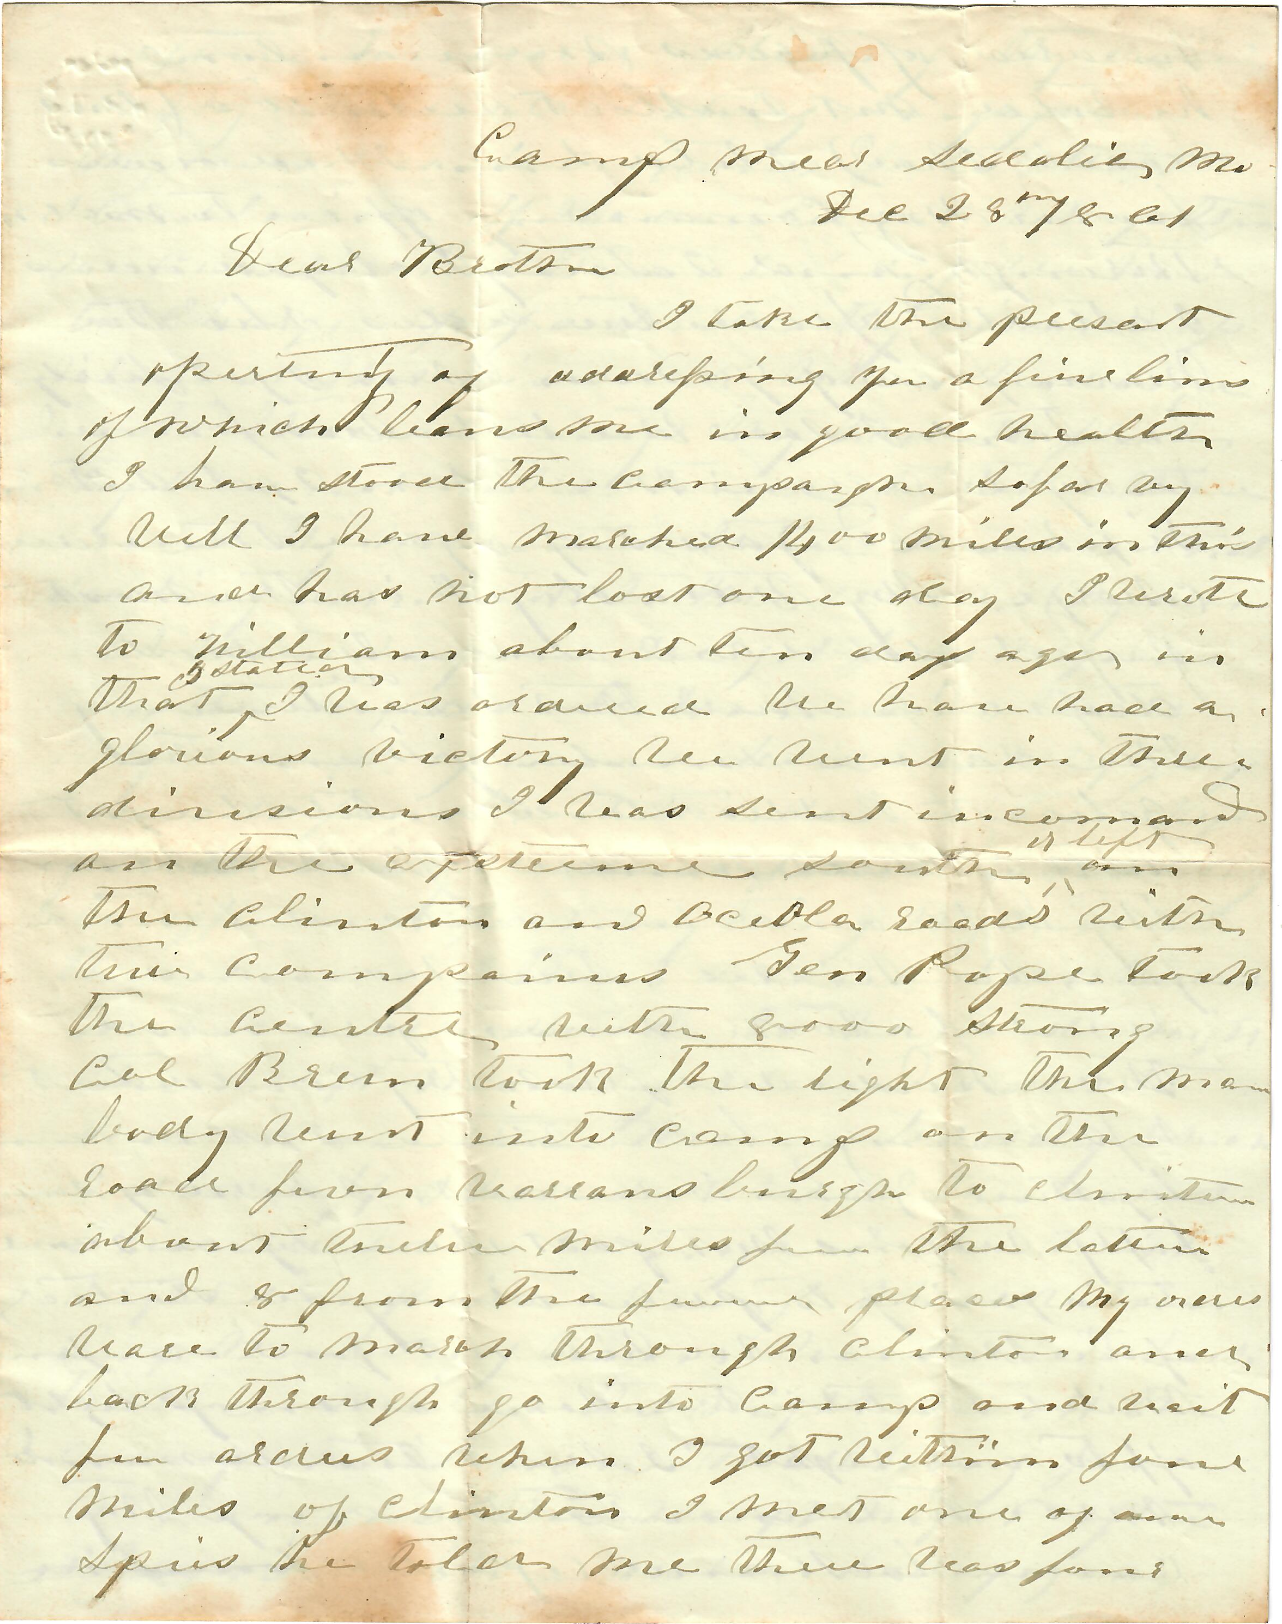 Camp near Sedalia, Mo
Dec 28th / 8 61
Dear Brother
I take the present
opertnity of addressing you a few lines
of which leaves me in good health
I have stood the campargn so far very
well I have marched 1400 miles in this
and has not lost one day I wrote
to William about ten day ago, in
that I stated I was ordered we have had a
glorious victory we went in three
divisions I was sent in comand
on the exstreme south or left on
the Clinton and Oceola roads with
two companies Gen Pope took
the centre, with 8000 strong
Col Brown took the right the main
body went into camp on the
road from warransburgh to Clinton
about twelve miles from the latter
and 8 from the former place My orders
ware to march through Clinton and
back through go into camp and wait
for orders when I got within four
miles of Clinton I met one of our
spies he told me there was four